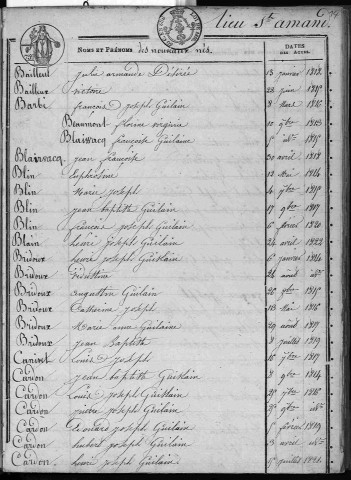 lieu St amand
NOMS ET PRÉNOMS des nouveaux nés.
DATES DES ACTES.
Bailleul julie armande Désirée 13 janvier 1813.
Bailleux victoire 23 juin
Barbi françois Joseph Guilain 8 Mars 1816
Beaumont florine virginie 10 9bre 1813
Blaiwacq françoise Guilaine
Blaiwacq jean françoise 30 avril 1818
Blin Euphrosine 12 Mai 1814
Blin Marie Joseph 4 9bre 1815
Blin jean baptiste Guilain 17 9bre 1817
Blin françois Joseph Guilain 6 février 1820
Blain henri Joseph Guilain 24 avril 1822
Bridoux henri joseph Guislain 6 janvier 1814
Bridoux 24 août
Bridoux augustin Guilain 20 9bre 1815
Bridoux Catherine Joseph 13 Mai 1816
Bridoux Marie anna Guilaine 29 août 1817
Bridoux jean Baptiste 8 juillet 1819
Caniret Louis Joseph 16 9bre 1817
Cardon jean baptiste Guislain 8 9bre 1814
Cardon Louis Joseph Guislain 25 9bre 1816
Cardon Joseph Guislain
Cardon Edouard Joseph Guislain 5 février 1819
Cardon hubert joseph Guislain 3 avril
Cardon henri joseph Guilain 15 juillet 1821.